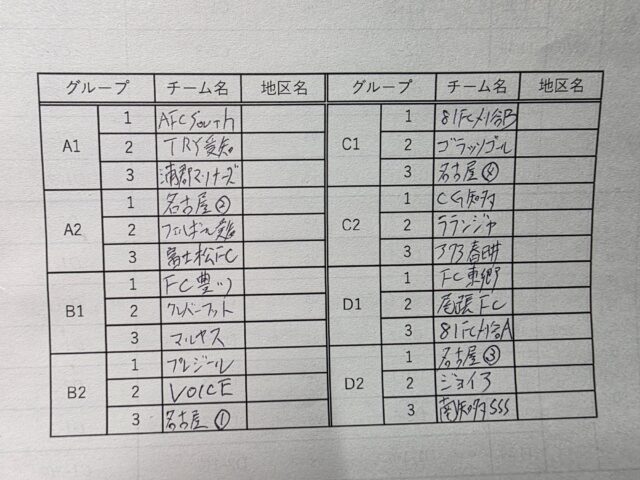 グループ チーム名 地区名 グループ チーム名 地区名
A1 1 AFC South C1 1 81FC刈谷B
2 TRY愛知 2 ゴラッソゴール
3 蒲郡マリナーズ 3 名古屋④
A2 1 名古屋② C2 1 CG知多
2 フェルボール愛知 2 ラランジャ
3 富士松FC 3 アクア春日井
B1 1 FC豊川 D1 1 FC東郷
2 クレバーフット 2 尾張FC
3 マルヤス 3 81FC刈谷A
B2 1 プレジール D2 1 名古屋③
2 VOICE 2 ジョイア
3 名古屋① 3 南知多SSS